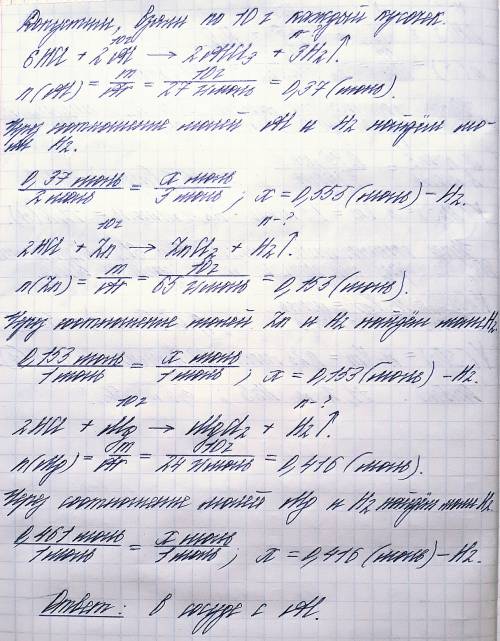 Допустим, взяли по 10 г каждый кусочек.
10г n-?
6HCl + 2Al → 2AlCl₃ + 3H₂↑.
n(Al) = m/Ar = 10г/27 г/моль = 0,37 (моль).
Через соотношение молей Al и H₂ найдём мо-
ли H₂.
0,37 моль/2 моль = x моль/3 моль; x = 0,555 (моль) – H₂.
10г n-?
2HCl + Zn → ZnCl₂ + H₂↑.
n(Zn) = m/Ar = 10г/65 г/моль = 0,153 (моль).
Через соотношение молей Zn и H₂ найдём моли H₂
0,153 моль/1 моль = x моль/1 моль; x = 0,153 (моль) – H₂.
10г n-?
2HCl + Mg → MgCl₂ + H₂↑.
n(Mg) = m/Ar = 10г/24 г/моль = 0,416 (моль).
Через соотношение молей Mg и H₂ найдём моли H₂
0,461 моль/1 моль = x моль/1 моль; x = 0,416 (моль) – H₂.
Ответ: в сосуде с Al.